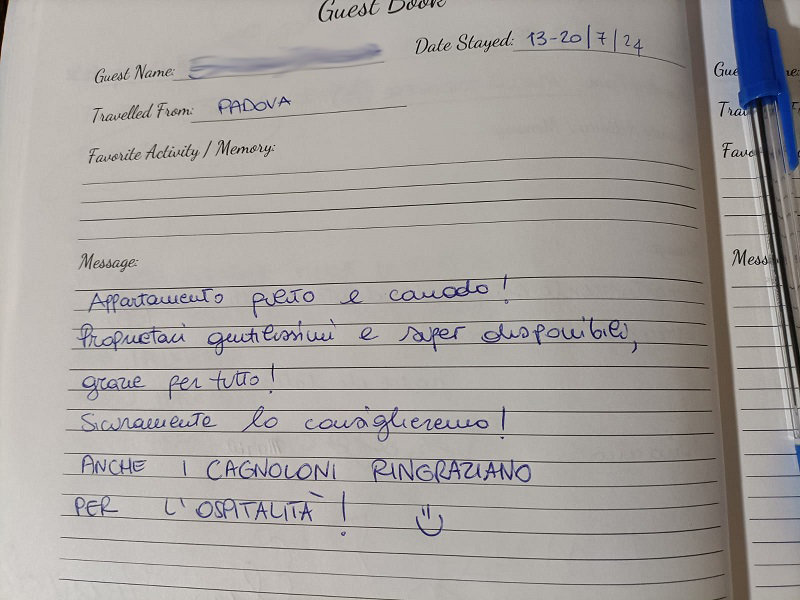 Guest Book
Guest Name:
Date Stayed: 13-20/7/24
Travelled From: PADOVA
Favorite Activity / Memory:
Message:
Appartamento pulito e comodo!
Proprietari gentilissimi e super disponibili,
grazie per tutto!
Sicuramente lo consiglieremo!
ANCHE I CAGNOLONI RINGRAZIANO
PER L'OSPITALITÀ! :)